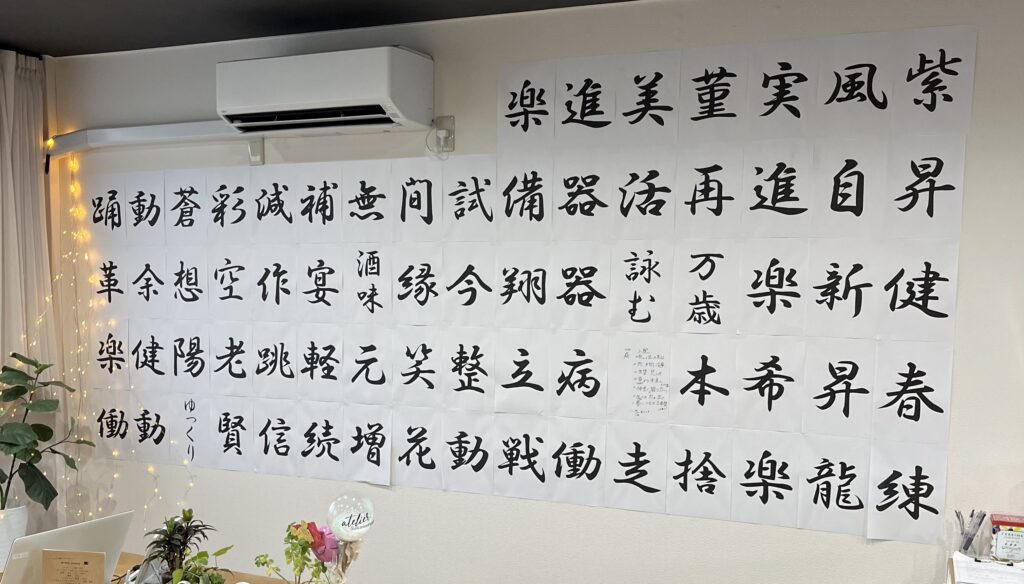 楽 進 美 菫 実 風 紫
踊 動 蒼 彩 減 補 無 間 試 備 器 活 再 進 自 昇
革 余 想 空 作 宴 酒味 縁 今 翔 器 詠む 万歳 楽 新 健
楽 健 陽 老 跳 軽 元 笑 整 立 病 本 希 昇 春
働 動 ゆっくり 賢 信 続 増 花 動 戦 働 走 捨 楽 龍 練
atelier